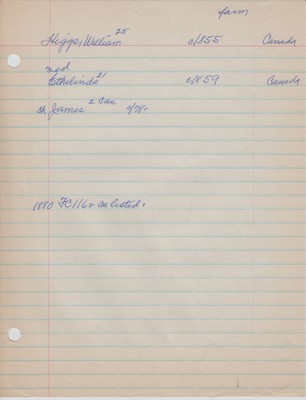 farm
Higgs, William 25 c/855 Canada
med
Ethelinda 21 c/859 Canada
ch James 2 Can 9/78
1880 FC 116 as listed.